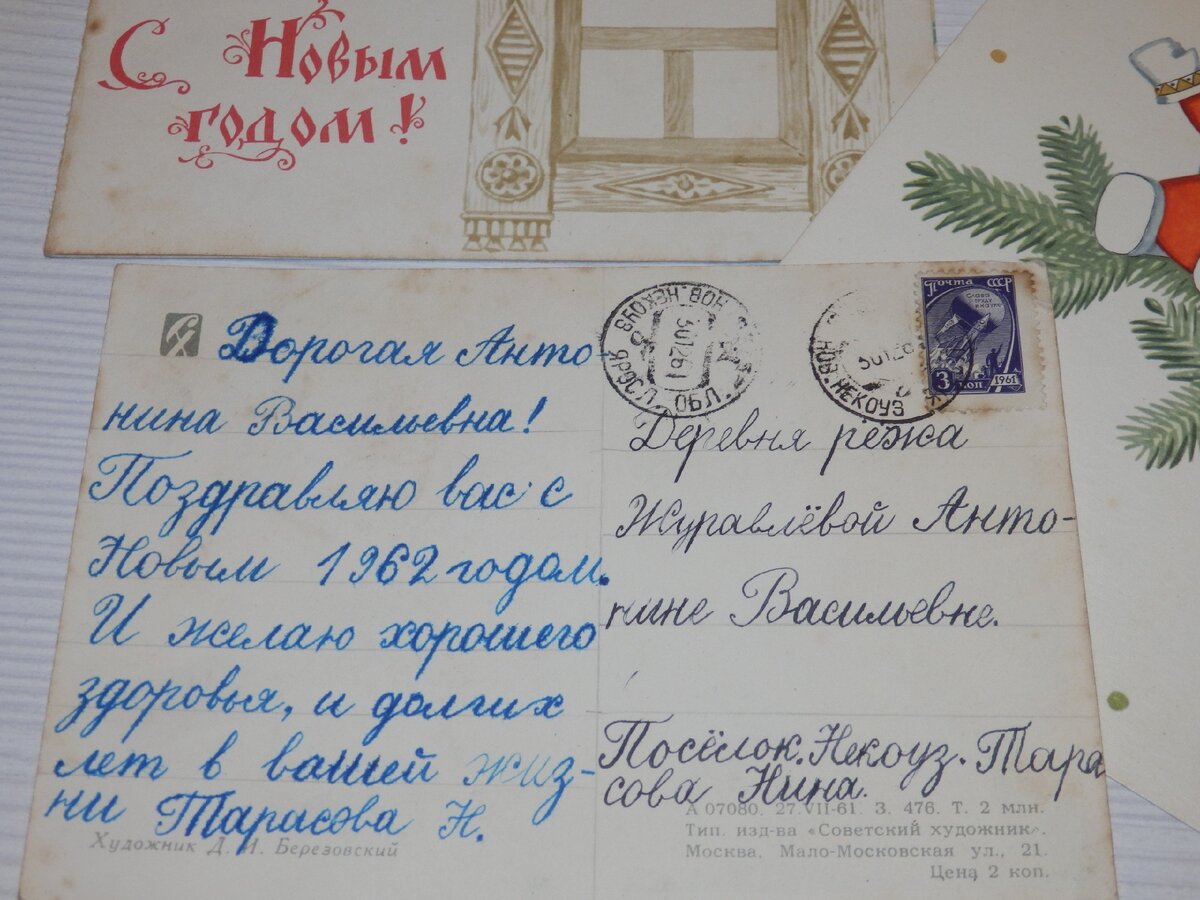 С Новым
годом!
Дорогая Анто-
нина Васильевна!
Поздравляю вас с
Новым 1962 годом.
И желаю хорошего
здоровья, и долгих
лет в вашей жиз-
ни Тарасова Н.
Художник Д. И. Березовский
НОВ. НЕКОУЗ
ЯРОСЛ. ОБЛ.
301261
НОВ. НЕКОУЗ
Почта СССР
Слава
труду
и науке
3 коп. 1961
Деревня режа
Журавлёвой Анто-
нине Васильевне.
Посёлок. Некоуз. Тара
сова Нина.
А 07080. 27.VII-61. З. 476. Т. 2 млн.
Тип. изд-ва «Советский художник».
Москва, Мало-Московская ул., 21.
Цена 2 коп.